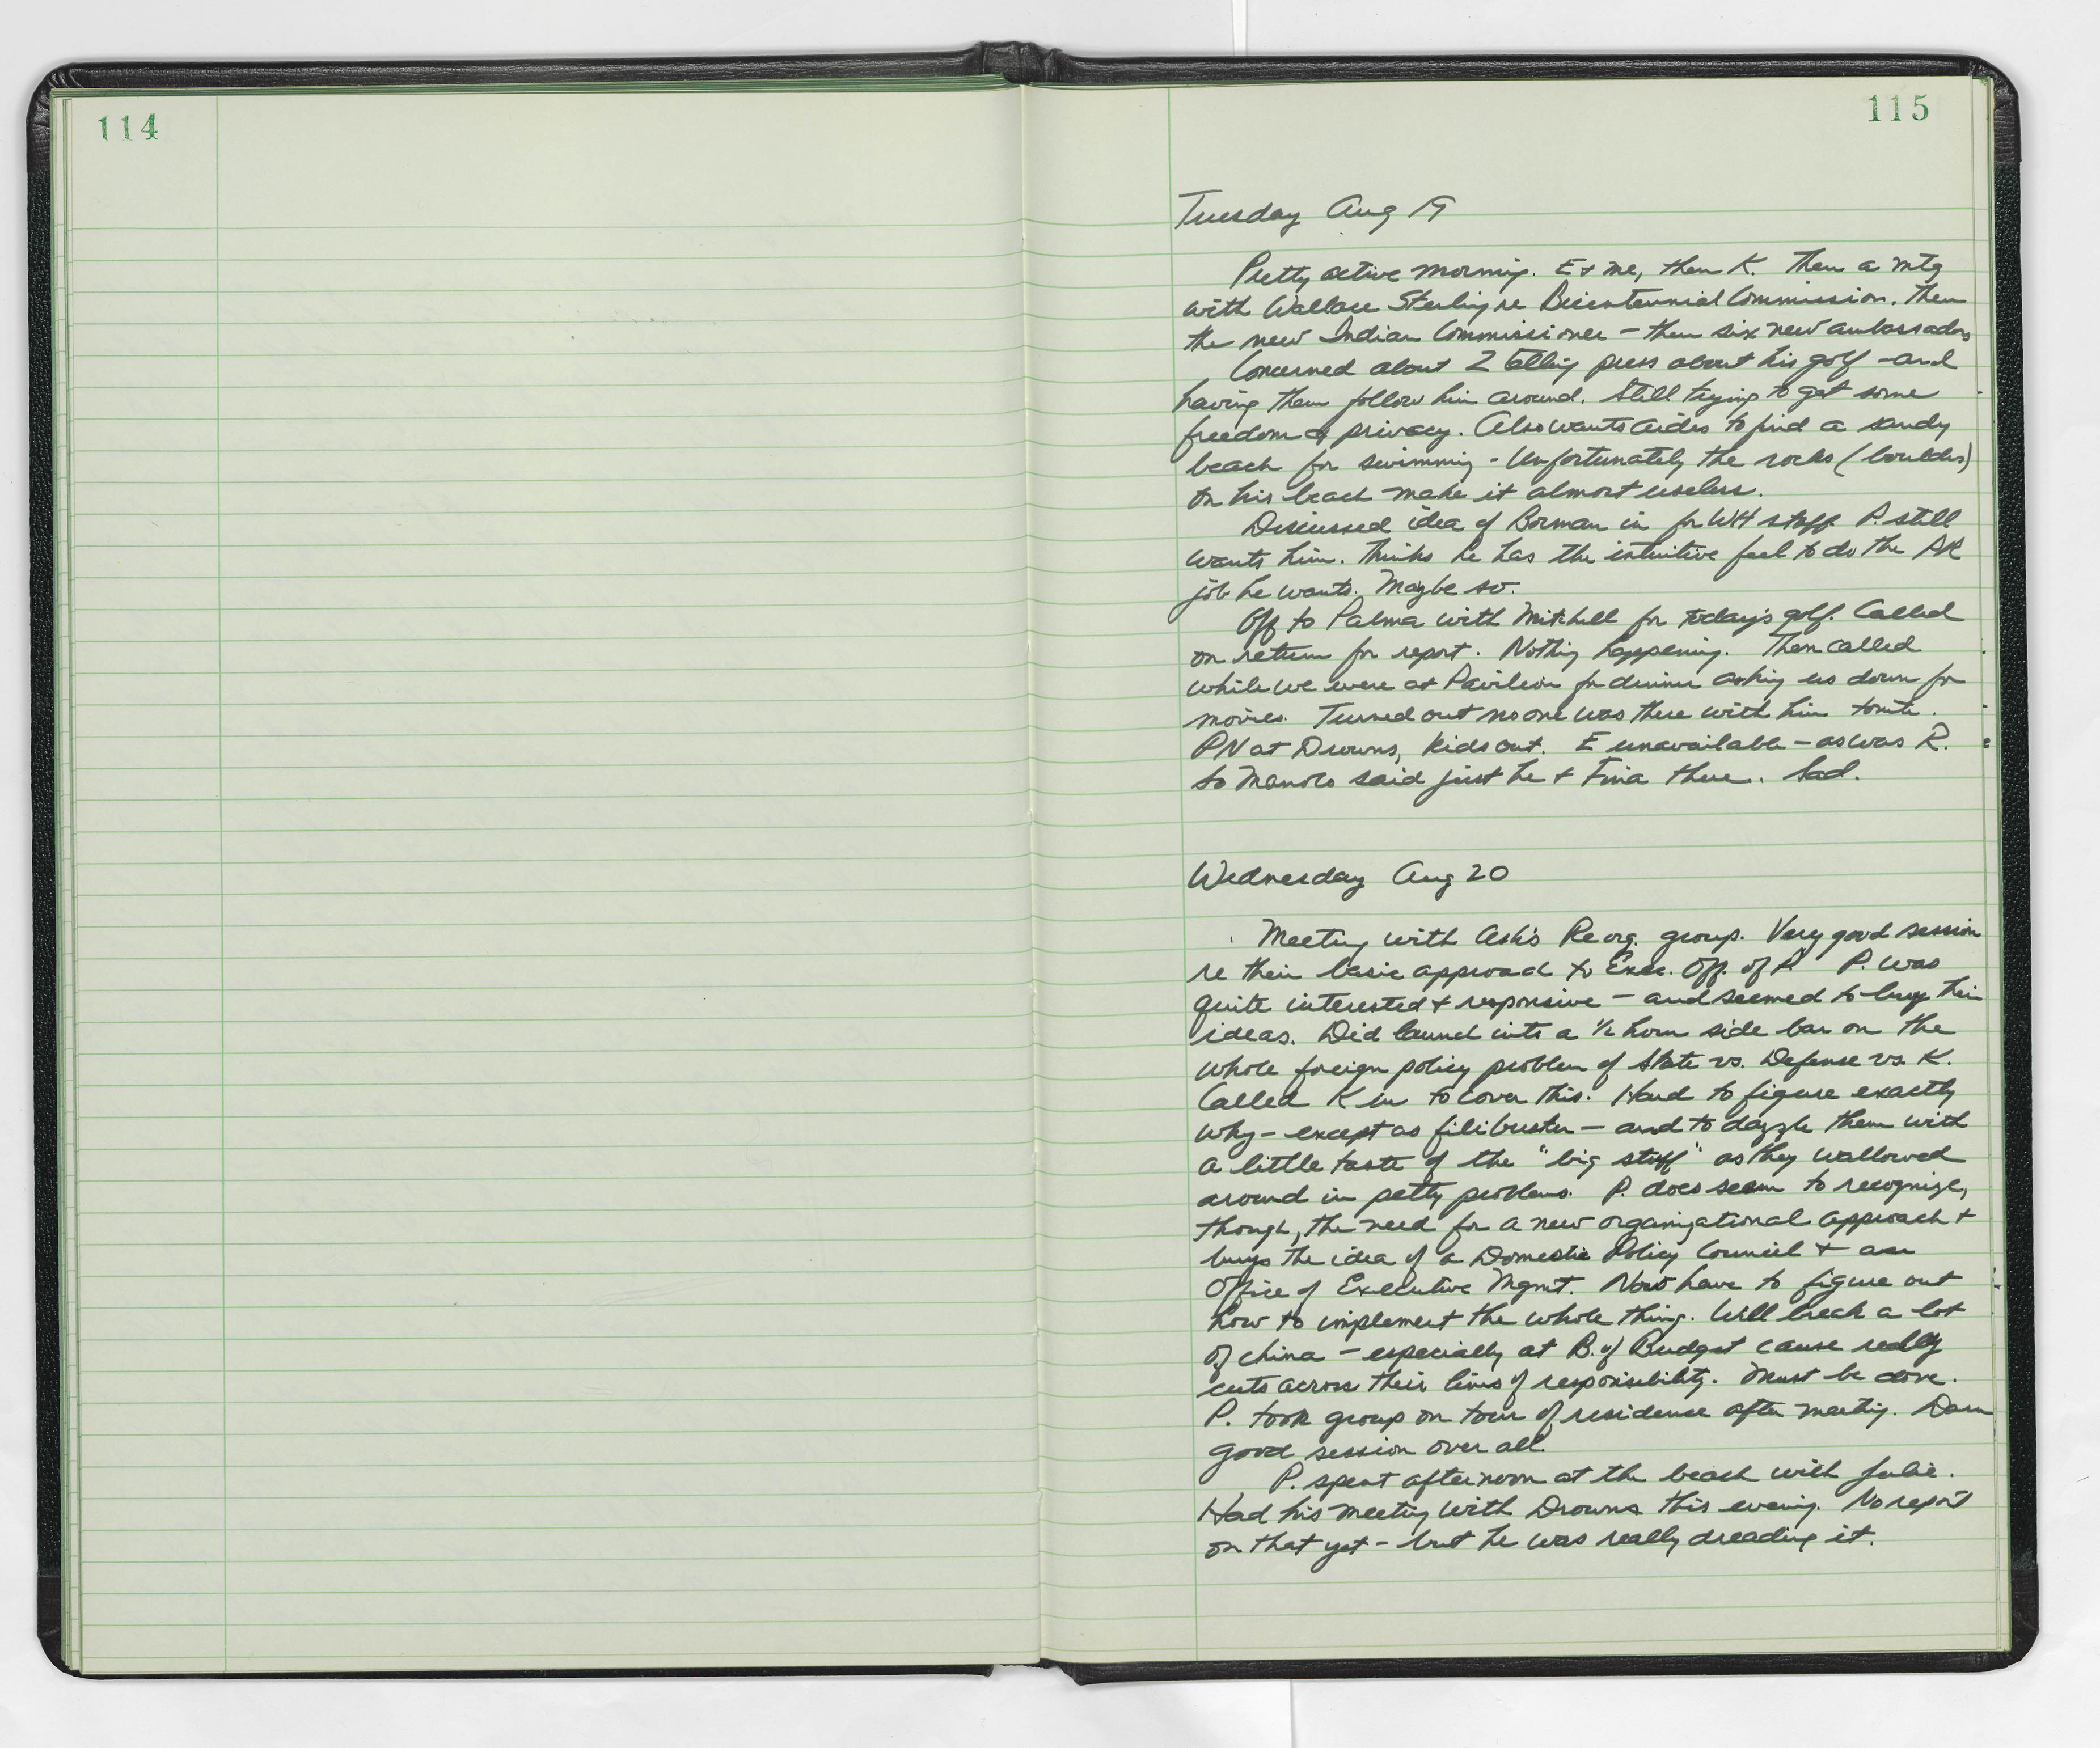 114
115
Tuesday Aug 19
Pretty active morning. E & me, then K. Then a mtg
with Wallace Sterling re Bicentennial Commission. Then
the new Indian Commissioner – then six new ambassadors
Concerned about Z telling press about his golf – and
having them follow him around. Still trying to get some
freedom & privacy. Also wants aides to find a sandy
beach for swimming – Unfortunately the rocks (boulders)
on his beach make it almost useless.
Discussed idea of Borman in for WH staff. P. still
wants him. Thinks he has the intuitive feel to do the PR
job he wants. Maybe so.
Off to Palma with Mitchell for today's golf. Called
on return for report. Nothing happening. Then called
while we were at Pavilion for dinner asking us down for
movies. Turned out no one was there with him tonite.
PN at Drowns, kids out. E unavailable – as was R.
So Manolo said just he & Fina there. Sad.
Wednesday Aug 20
Meeting with Ash's Reorg. group. Very good session
re their basic approach to Exec. Off. of P. P. was
quite interested & responsive – and seemed to buy their
ideas. Did launch into a ½ hour side bar on the
whole foreign policy problem of State vs. Defense vs. K.
Called K in to cover this. Hard to figure exactly
why – except as filibuster – and to dazzle them with
a little taste of the "big stuff" as they wallowed
around in petty problems. P. does seem to recognize,
though, the need for a new organizational approach &
buys the idea of a Domestic Policy Council & an
Office of Executive Mgmt. Now have to figure out
how to implement the whole thing. Will break a lot
of china – especially at B. of Budget cause really
cuts across their lines of responsibility. Must be done.
P. took group on tour of residence after meeting. Darn
good session over all.
P. spent afternoon at the beach with Julie.
Had his meeting with Drowns this evening. No report
on that yet – but he was really dreading it.